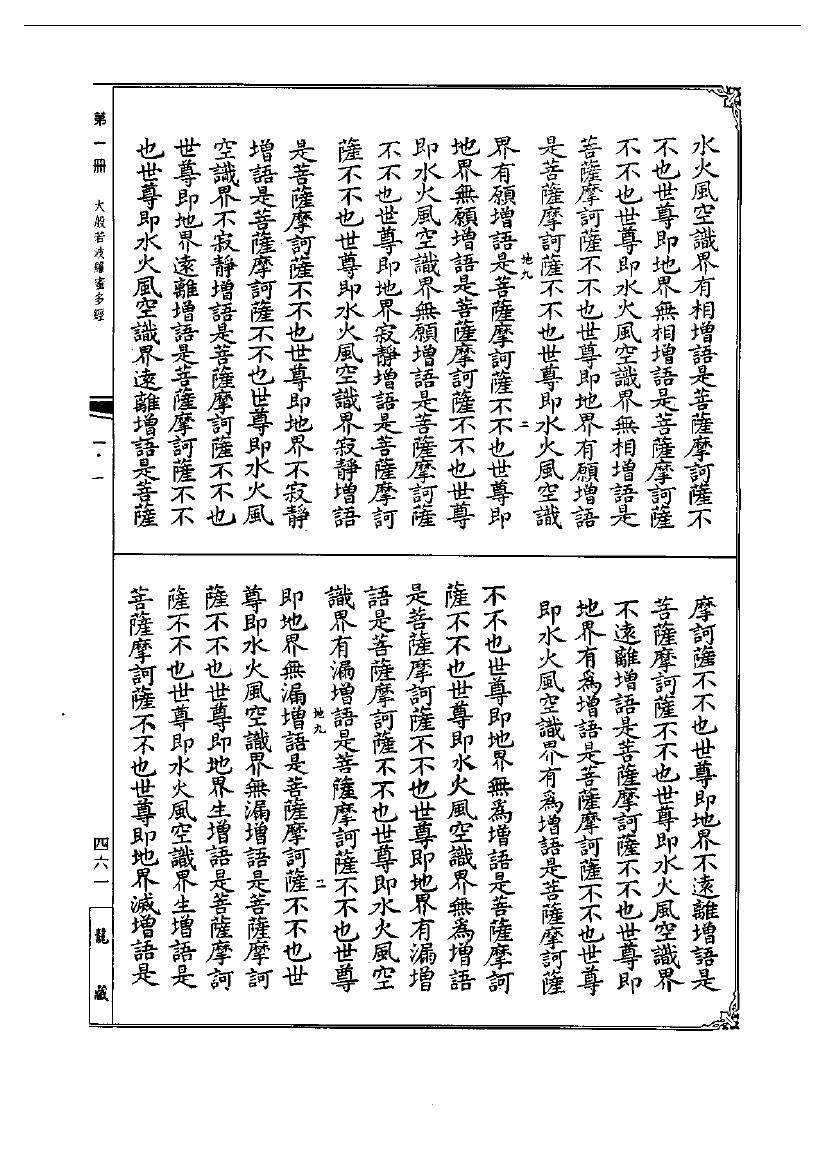 水火風空識界有相增語是菩薩摩訶薩不
不也世尊即地界無相增語是菩薩摩訶薩
不不也世尊即水火風空識界無相增語是
菩薩摩訶薩不不也世尊即地界有願增語
是菩薩摩訶薩不不也世尊即水火風空識
地九 二
界有願增語是菩薩摩訶薩不不也世尊即
地界無願增語是菩薩摩訶薩不不也世尊
即水火風空識界無願增語是菩薩摩訶薩
不不也世尊即地界寂靜增語是菩薩摩訶
薩不不也世尊即水火風空識界寂靜增語
是菩薩摩訶薩不不也世尊即地界不寂靜
增語是菩薩摩訶薩不不也世尊即水火風
空識界不寂靜增語是菩薩摩訶薩不不也
世尊即地界遠離增語是菩薩摩訶薩不不
也世尊即水火風空識界遠離增語是菩薩
摩訶薩不不也世尊即地界不遠離增語是
菩薩摩訶薩不不也世尊即水火風空識界
不遠離增語是菩薩摩訶薩不不也世尊即
地界有為增語是菩薩摩訶薩不不也世尊
即水火風空識界有為增語是菩薩摩訶薩
不不也世尊即地界無為增語是菩薩摩訶
薩不不也世尊即水火風空識界無為增語
是菩薩摩訶薩不不也世尊即地界有漏增
語是菩薩摩訶薩不不也世尊即水火風空
識界有漏增語是菩薩摩訶薩不不也世尊
地九 二
即地界無漏增語是菩薩摩訶薩不不也世
尊即水火風空識界無漏增語是菩薩摩訶
薩不不也世尊即地界生增語是菩薩摩訶
薩不不也世尊即水火風空識界生增語是
菩薩摩訶薩不不也世尊即地界滅增語是
第一冊 大般若波羅蜜多經
一·一
四六一
龍藏